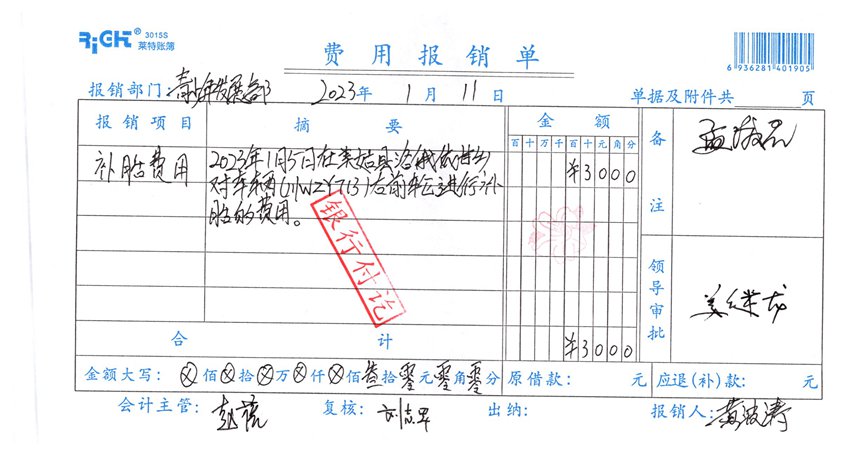 RiGHT® 3015S
莱特账簿
费用报销单
6 936281 401905
报销部门: 2023年 1月 11日 单据及附件共 页
报销项目 摘要 金额 备注
百十万千百十元角分
补胎费用 2023年1月5日在
¥3000
对车辆 右前轮进行补
胎的费用。
银行付讫
领导审批
合计 ¥3000
金额大写: ⊗佰⊗拾⊗万⊗仟⊗佰叁拾零元零角零分 原借款: 元 应退(补)款: 元
会计主管: 复核: 出纳: 报销人: 黄波涛